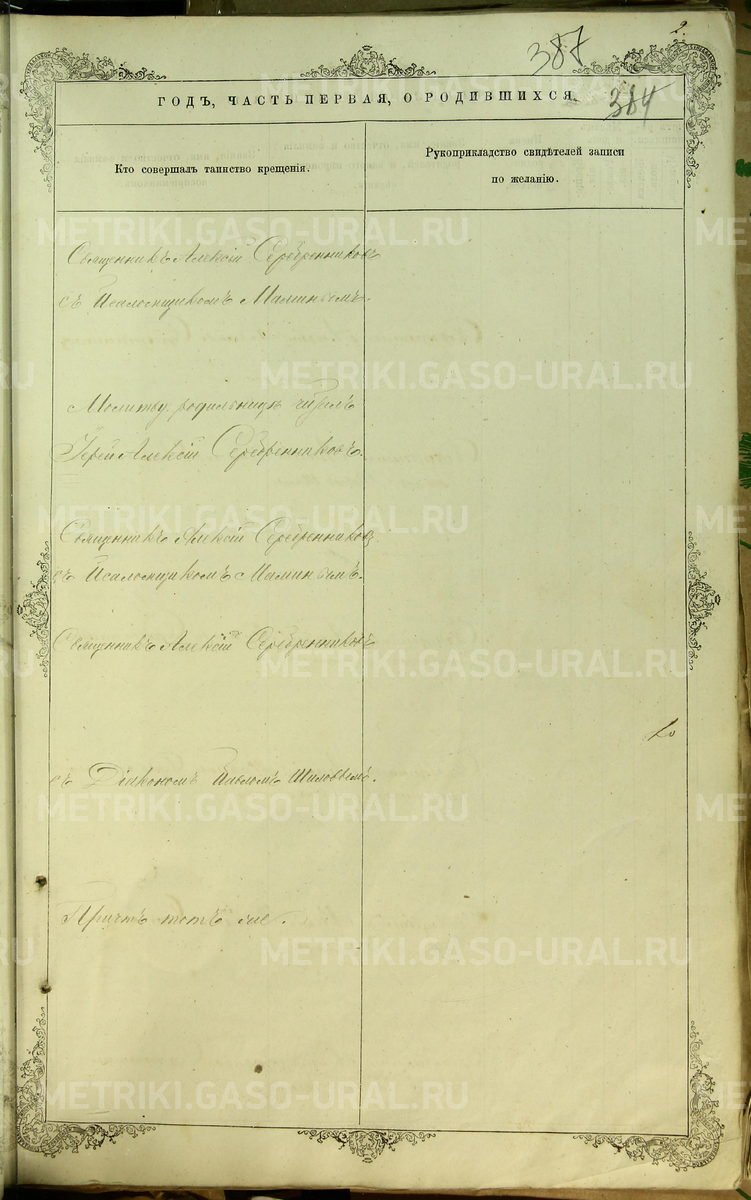 2.
387
384
ГОДЪ, ЧАСТЬ ПЕРВАЯ, О РОДИВШИХСЯ.
Кто совершалъ таинство крещенія.
Рукоприкладство свидѣтелей записи
по желанію.
Священникъ Алексій Серебренниковъ
съ Псаломщикомъ Маминымъ.
Молитву родильницѣ читалъ
Іерей Алексій Серебренниковъ.
Священникъ Алексій Серебренниковъ
съ Псаломщикомъ Маминымъ.
Священникъ Алексій Серебренниковъ
съ Діакономъ Павломъ Шиловымъ.
Причтъ тотъ же.
METRIKI.GASO-URAL.RU